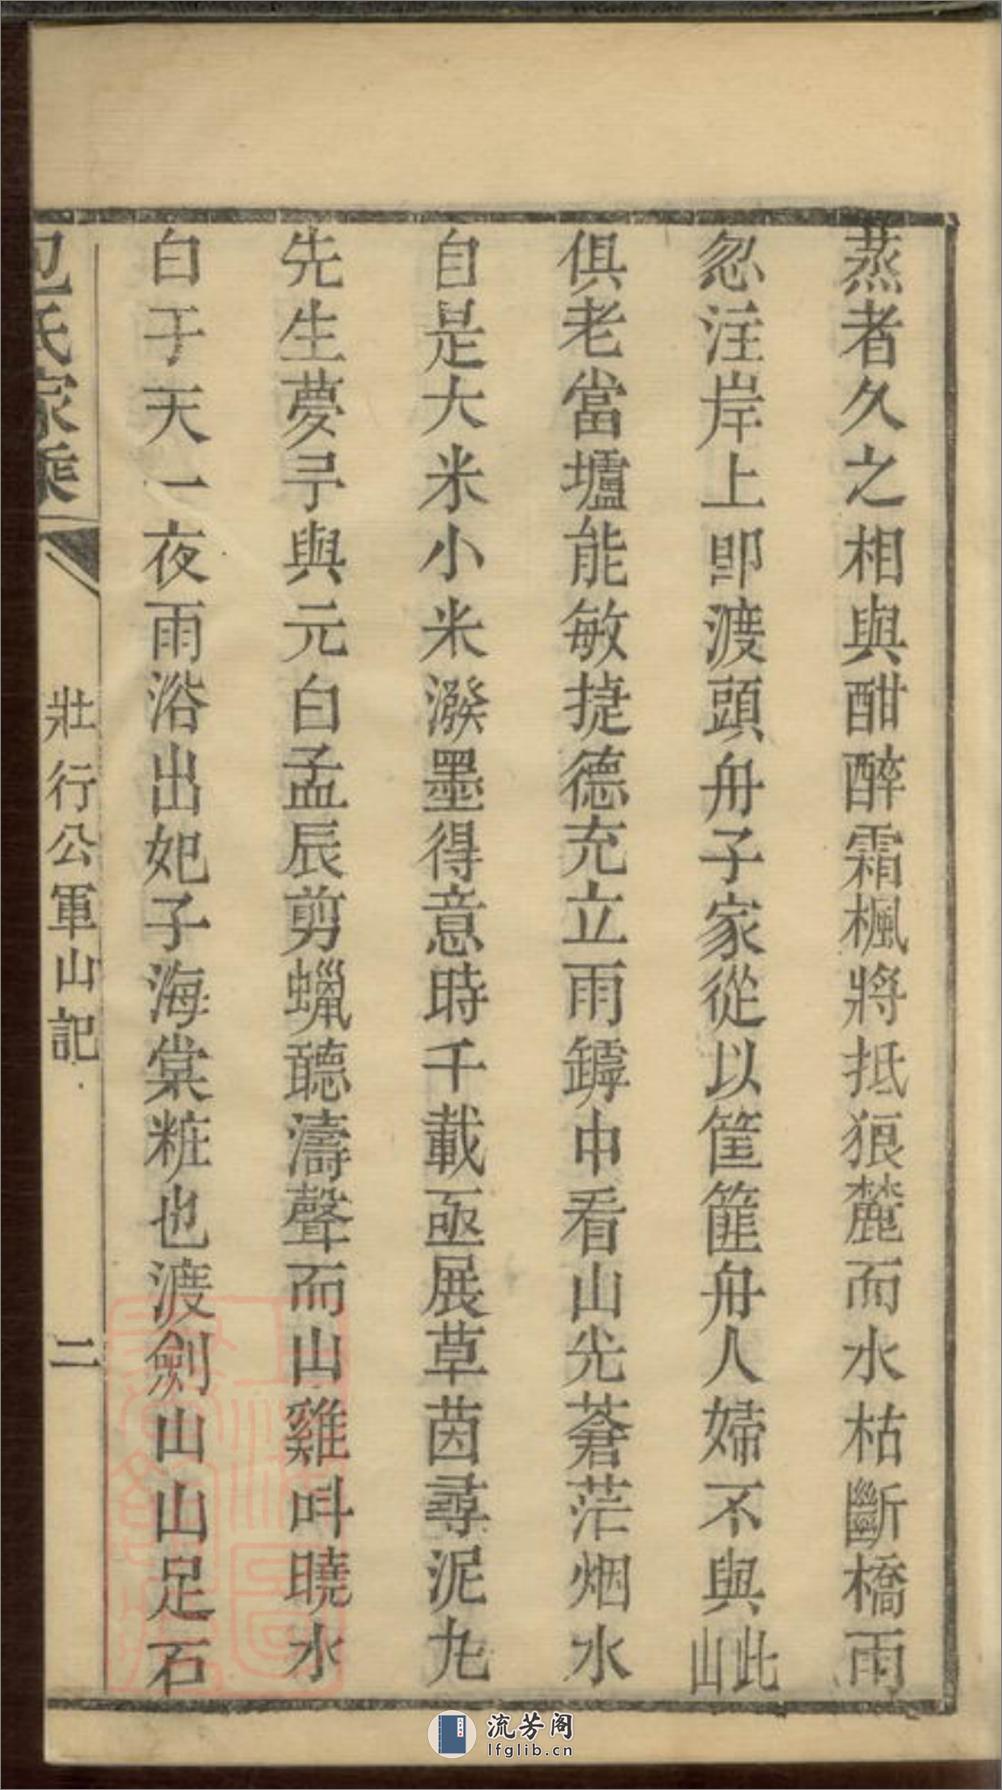 蒸者久之相與酣醉霜楓將抵狼麓而水枯斷橋雨
忽注岸上即渡頭舟子家從以筐篚舟人婦不與此山
俱老當壚能敏捷德充立雨鎼中看山光蒼茫烟水
自是大米小米潑墨得意時千載亟展草茵尋泥丸
先生夢予與元白孟辰剪蠟聽濤聲而山雞叫曉水
白于天一夜雨浴出妃子海棠粧也渡劍山山足石
包氏家乘
壯行公軍山記
二
流芳阁
lfglib.cn